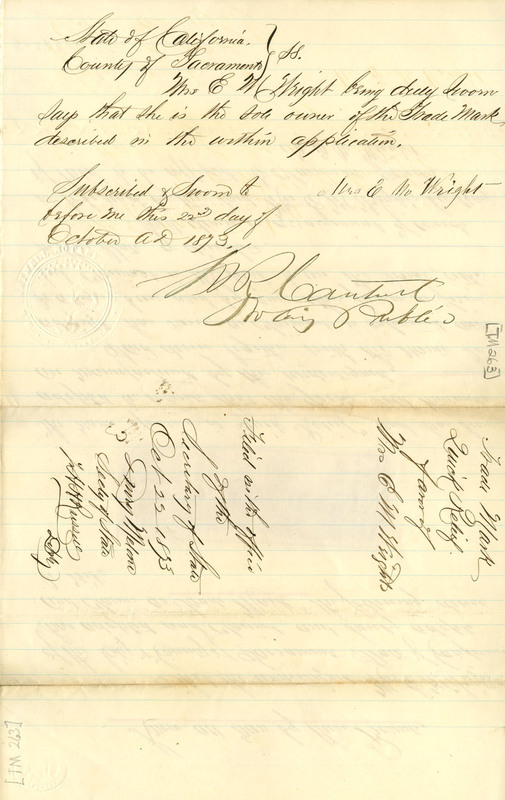 State of California.
County of Sacramento } SS.
Mrs E M Wright being duly sworn
says that she is the sole owner of the Trade Mark
described in the within application.
Subscribed & Sworn to
before me this 22nd day of
October AD 1873.
Mrs E M Wright
Notary Public
[TM 263]
Trade Mark
Quick Relief
favor of
Mrs E M Wrights
Filed in the Office
of the
Secretary of State
Oct 22 1873
Drury Melone
Secty of State
Dep
[TM 263]